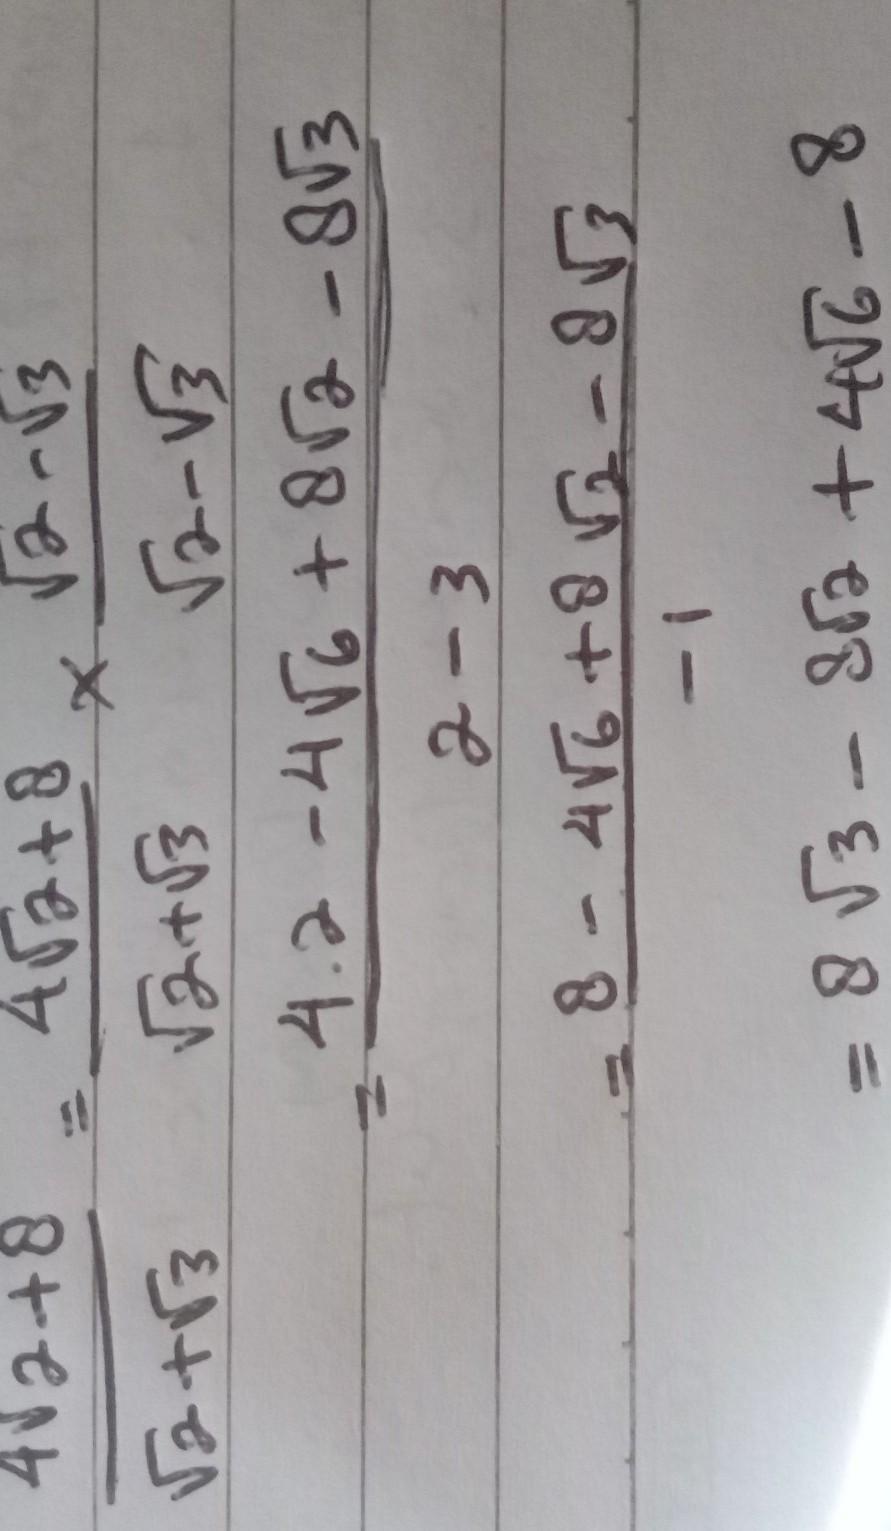 4√2+8 = 4√2+8 × √2-√3
√2+√3 √2+√3 √2-√3
= 4.2 - 4√6 + 8√2 - 8√3
2 - 3
= 8 - 4√6 + 8√2 - 8√3
- 1
= 8√3 - 8√2 + 4√6 - 8